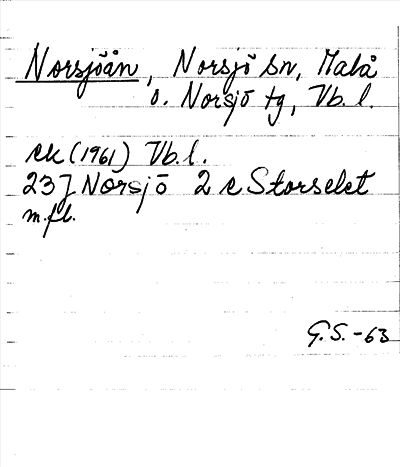 Norsjöån, Norsjö sn, Malå
o. Norsjö tg, Vb. l.
ek (1961) Vb. l.
23 J Norsjö 2 c Storselet
m.fl.
G.S. -63